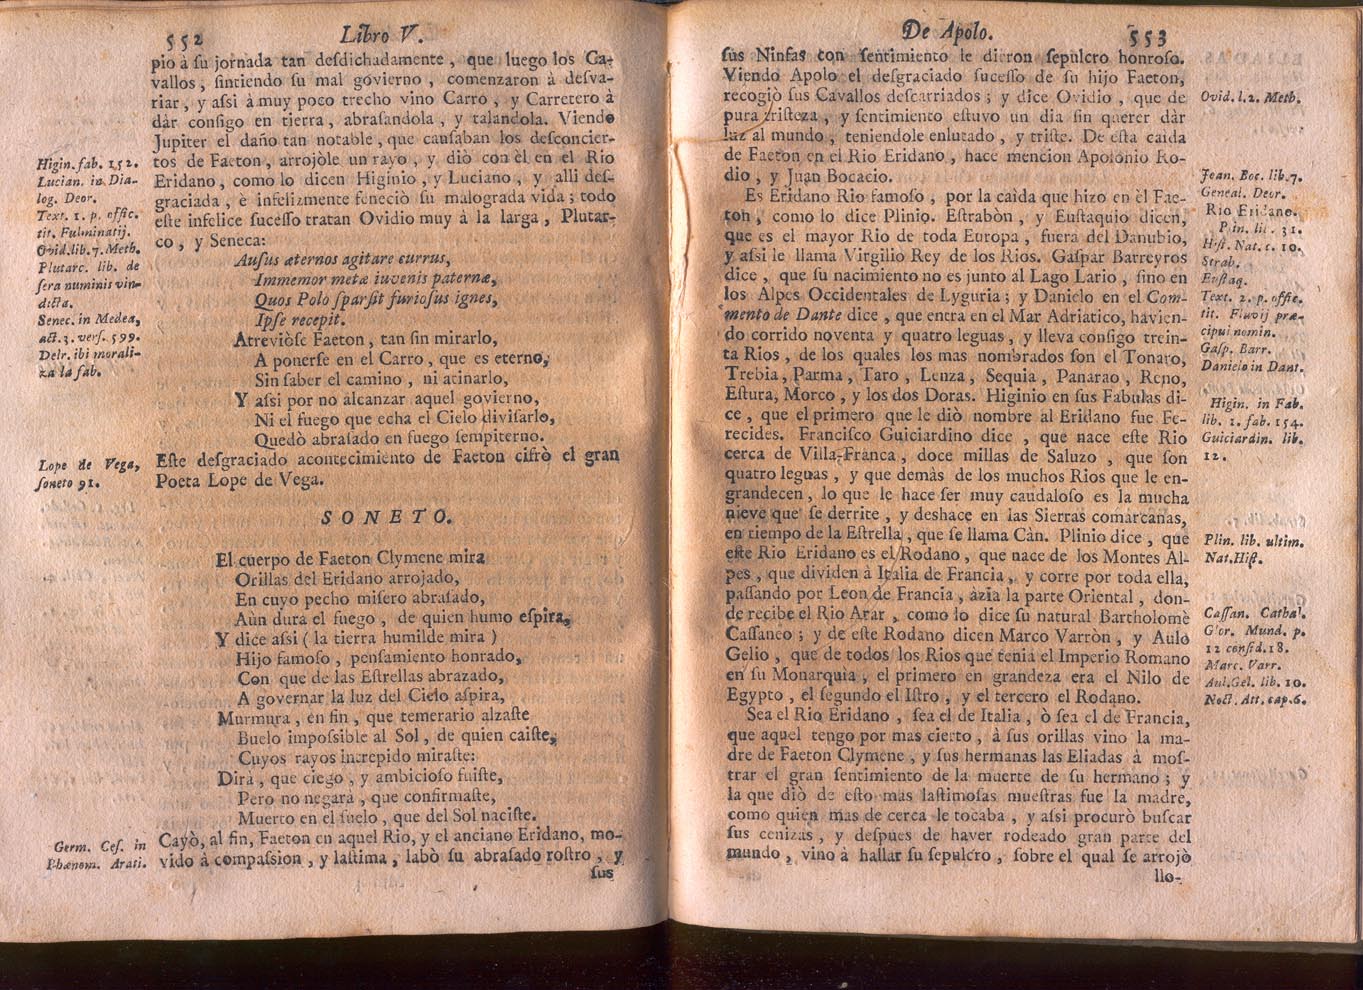 552
Libro V.
pio à ſu jornada tan deſdichadamente, que luego los Ca-
vallos, ſintiendo ſu mal govierno, comenzaron à deſva-
riar, y aſsi à muy poco trecho vino Carro, y Carretero à
dàr conſigo en tierra, abraſandola, y talandola. Viendo
Jupiter el daño tan notable, que cauſaban los deſconcier-
tos de Faeton, arrojòle un rayo, y diò con èl en el Rio
Eridano, como lo dicen Higinio, y Luciano, y alli deſ-
graciada, è infelizmente feneciò ſu malograda vida; todo
eſte infelice ſuceſſo tratan Ovidio muy à la larga, Plutar-
co, y Seneca:
Auſus æternos agitare currus,
Immemor metæ iuvenis paternæ,
Quos Polo ſparſit furioſus ignes,
Ipſe recepit.
Atreviòſe Faeton, tan ſin mirarlo,
A ponerſe en el Carro, que es eterno,
Sin ſaber el camino, ni atinarlo,
Y aſsi por no alcanzar aquel govierno,
Ni el fuego que echa el Cielo diviſarlo,
Quedò abraſado en fuego ſempiterno.
Eſte deſgraciado acontecimiento de Faeton cifrò el gran
Poeta Lope de Vega.
SONETO.
El cuerpo de Faeton Clymene mira
Orillas del Eridano arrojado,
En cuyo pecho miſero abraſado,
Aùn dura el fuego, de quien humo eſpira,
Y dice aſsi (la tierra humilde mira)
Hijo famoſo, penſamiento honrado,
Con que de las Eſtrellas abrazado,
A governar la luz del Cielo aſpira,
Murmura, en fin, que temerario alzaſte
Buelo impoſsible al Sol, de quien caiſte,
Cuyos rayos intrepido miraſte:
Dirà, que ciego, y ambicioſo fuiſte,
Pero no negarà, que confirmaſte,
Muerto en el ſuelo, que del Sol naciſte.
Cayò, al fin, Faeton en aquel Rio, y el anciano Eridano, mo-
vido à compaſsion, y laſtima, labò ſu abraſado roſtro, y
ſus
Higin. fab. 152.
Lucian. in Dia-
log. Deor.
Text. 1. p. offic.
tit. Fulminatij.
Ovid. lib. 7. Meth.
Plutarc. lib. de
ſera numinis vin-
dicta.
Senec. in Medea,
act. 3. verſ. 599.
Delr. ibi morali-
za la fab.
Lope de Vega,
ſoneto 91.
Germ. Ceſ. in
Phænom. Arati.
De Apolo.
553
ſus Ninfas con ſentimiento le dieron ſepulcro honroſo.
Viendo Apolo el deſgraciado ſuceſſo de ſu hijo Faeton,
recogiò ſus Cavallos deſcarriados; y dice Ovidio, que de
pura triſteza, y ſentimiento eſtuvo un dia ſin querer dàr
luz al mundo, teniendole enlutado, y triſte. De eſta caida
de Faeton en el Rio Eridano, hace mencion Apolonio Ro-
dio, y Juan Bocacio.
Es Eridano Rio famoſo, por la caìda que hizo en èl Fae-
ton, como lo dice Plinio. Eſtrabòn, y Euſtaquio dicen,
que es el mayor Rio de toda Europa, fuera del Danubio,
y aſsi le llama Virgilio Rey de los Rios. Gaſpar Barreyros
dice, que ſu nacimiento no es junto al Lago Lario, ſino en
los Alpes Occidentales de Lyguria; y Danielo en el Com-
mento de Dante dice, que entra en el Mar Adriatico, havien-
do corrido noventa y quatro leguas, y lleva conſigo trein-
ta Rios, de los quales los mas nombrados ſon el Tonaro,
Trebia, Parma, Taro, Lenza, Sequia, Panarao, Reno,
Eſtura, Morco, y los dos Doras. Higinio en ſus Fabulas di-
ce, que el primero que le diò nombre al Eridano fue Fe-
recides. Franciſco Guiciardino dice, que nace eſte Rio
cerca de Villa-Franca, doce millas de Saluzo, que ſon
quatro leguas, y que demàs de los muchos Rios que le en-
grandecen, lo que le hace ſer muy caudaloſo es la mucha
nieve que ſe derrite, y deshace en las Sierras comarcanas,
en tiempo de la Eſtrella, que ſe llama Càn. Plinio dice, que
eſte Rio Eridano es el Rodano, que nace de los Montes Al-
pes, que dividen à Italia de Francia, y corre por toda ella,
paſſando por Leon de Francia, àzia la parte Oriental, don-
de recibe el Rio Arar, como lo dice ſu natural Bartholomè
Caſſaneo; y de eſte Rodano dicen Marco Varròn, y Aulo
Gelio, que de todos los Rios que tenia el Imperio Romano
en ſu Monarquia, el primero en grandeza era el Nilo de
Egypto, el ſegundo el Iſtro, y el tercero el Rodano.
Sea el Rio Eridano, ſea el de Italia, ò ſea el de Francia,
que aquel tengo por mas cierto, à ſus orillas vino la ma-
dre de Faeton Clymene, y ſus hermanas las Eliadas à moſ-
trar el gran ſentimiento de la muerte de ſu hermano; y
la que diò de eſto mas laſtimoſas mueſtras fue la madre,
como quien mas de cerca le tocaba, y aſsi procurò buſcar
ſus cenizas, y deſpues de haver rodeado gran parte del
mundo, vino à hallar ſu ſepulcro, ſobre el qual ſe arrojò
llo-
Ovid. l. 2. Meth.
Joan. Boc. lib. 7.
Geneal. Deor.
Rio Eridano.
Plin. lib. 31.
Hiſt. Nat. c. 10.
Strab.
Euſtaq.
Text. 2. p. offic.
tit. Fluvij præ-
cipui nomin.
Gaſp. Barr.
Danielo in Dant.
Higin. in Fab.
lib. 1. fab. 154.
Guiciardin. lib.
12.
Plin. lib. ultim.
Nat. Hiſt.
Caſſan. Cathal.
Glor. Mund. p.
12 conſid. 18.
Marc. Varr.
Aul. Gel. lib. 10.
Noct. Att. cap. 6.